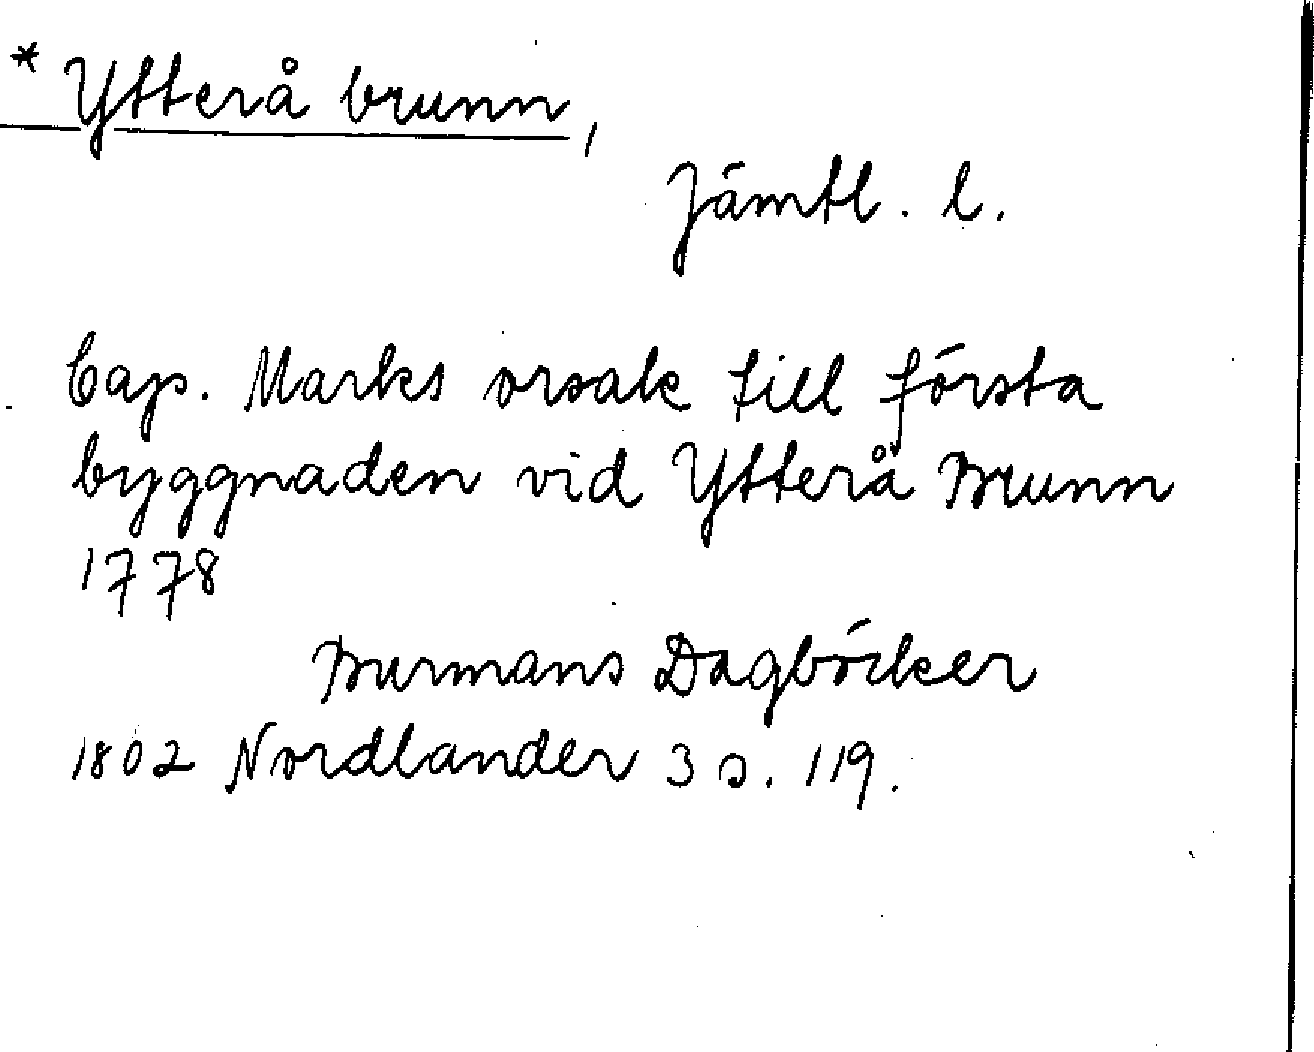 * Ytterå brunn,
Jämtl. l.
Cap. Marks orsak till första
byggnaden vid Ytterå Brunn
1778
Burmans Dagböcker
1802 Nordlander 3 s. 119.